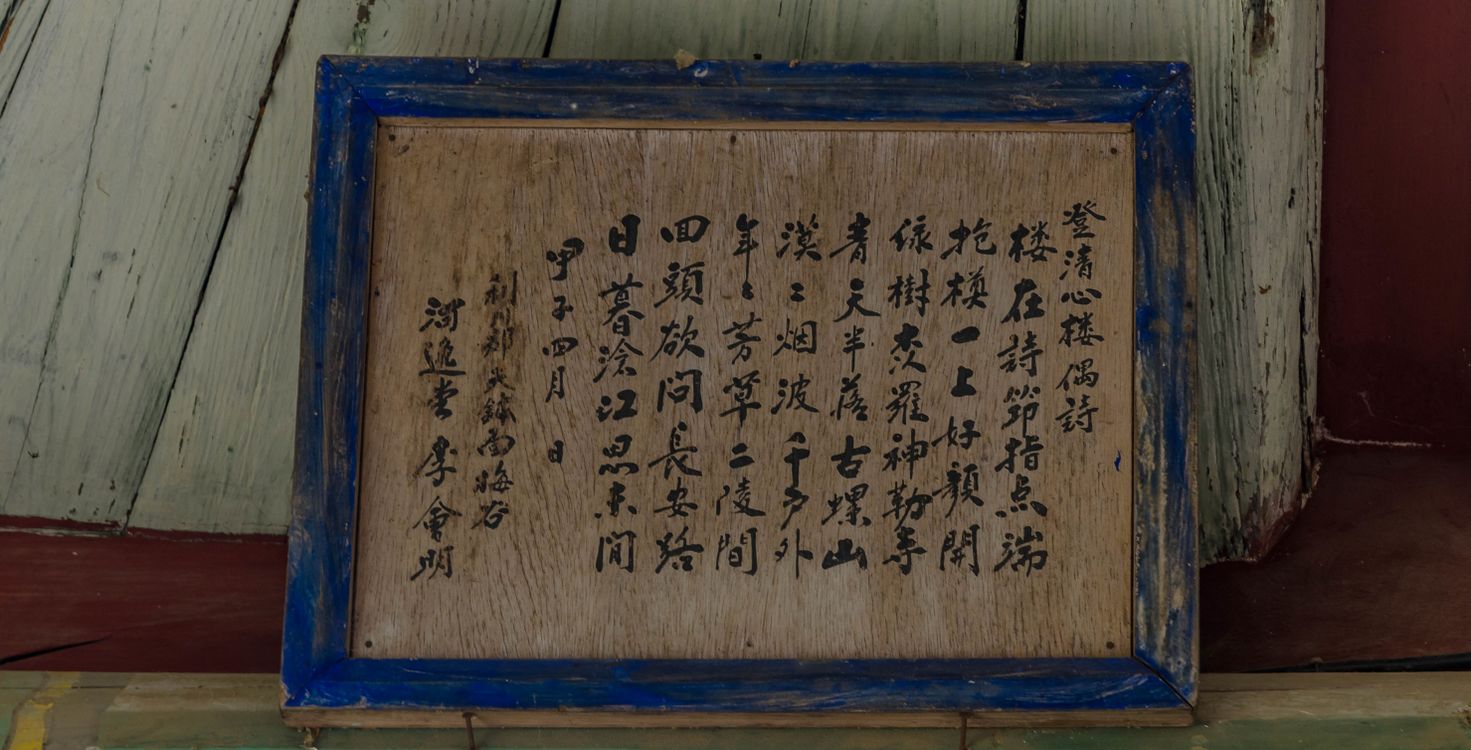 登清心楼偶詩
楼在詩筇指点端
抱模一上好顔開
緑樹森羅神勒寺
青天半落古螺山
漠〻烟波千戸外
年〻芳草二陵間
回頭欲問長安路
日暮滄江思未閒
甲子四月 日
利川郡夫鉢面晦谷
濁逸堂 李會明